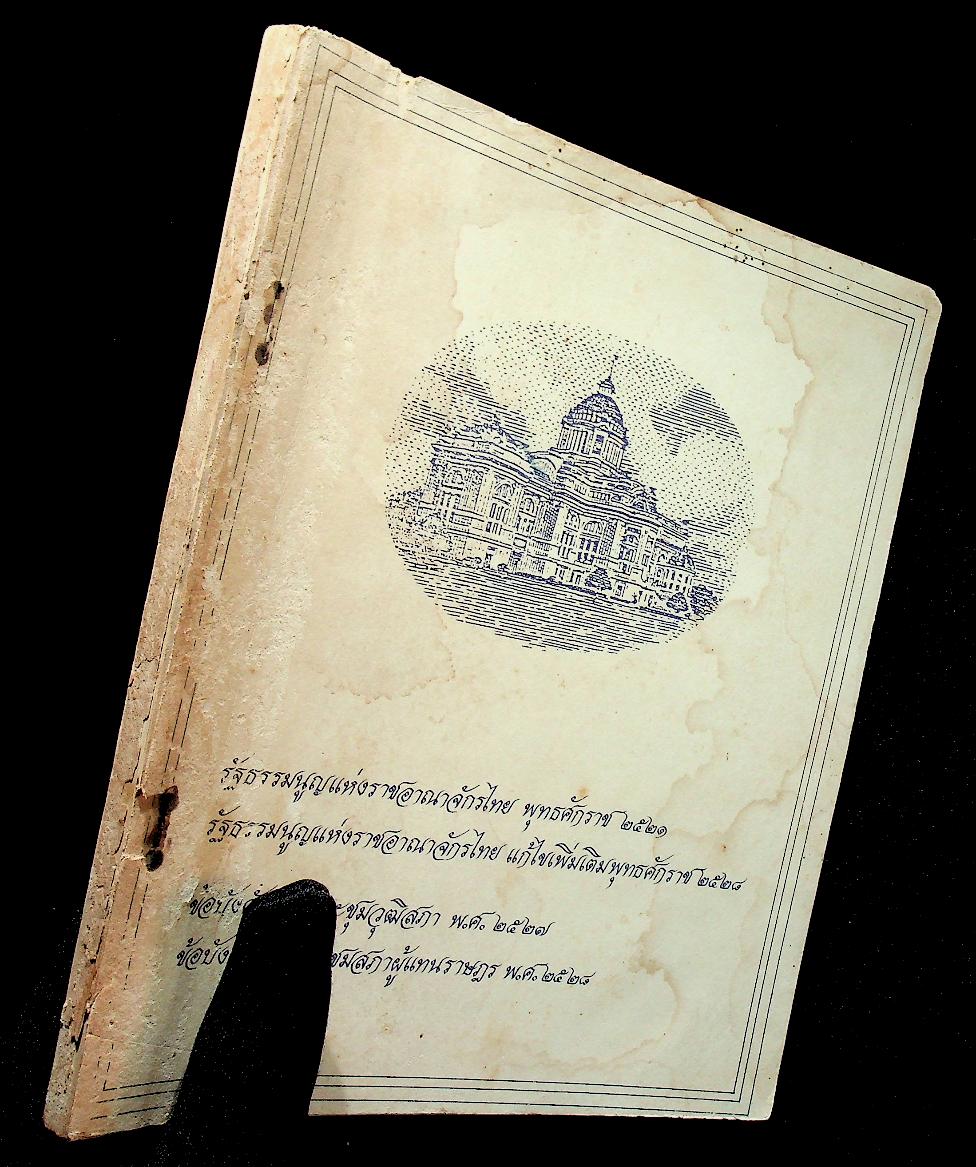 รัฐธรรมนูญแห่งราชอาณาจักรไทย พุทธศักราช ๒๕๒๑
รัฐธรรมนูญแห่งราชอาณาจักรไทย แก้ไขเพิ่มเติมพุทธศักราช ๒๕๒๘
ข้อบัง ชุมวุฒิสภา พ.ศ. ๒๕๒๗
ข้อบัง ชุมสภาผู้แทนราษฎร พ.ศ. ๒๕๒๘